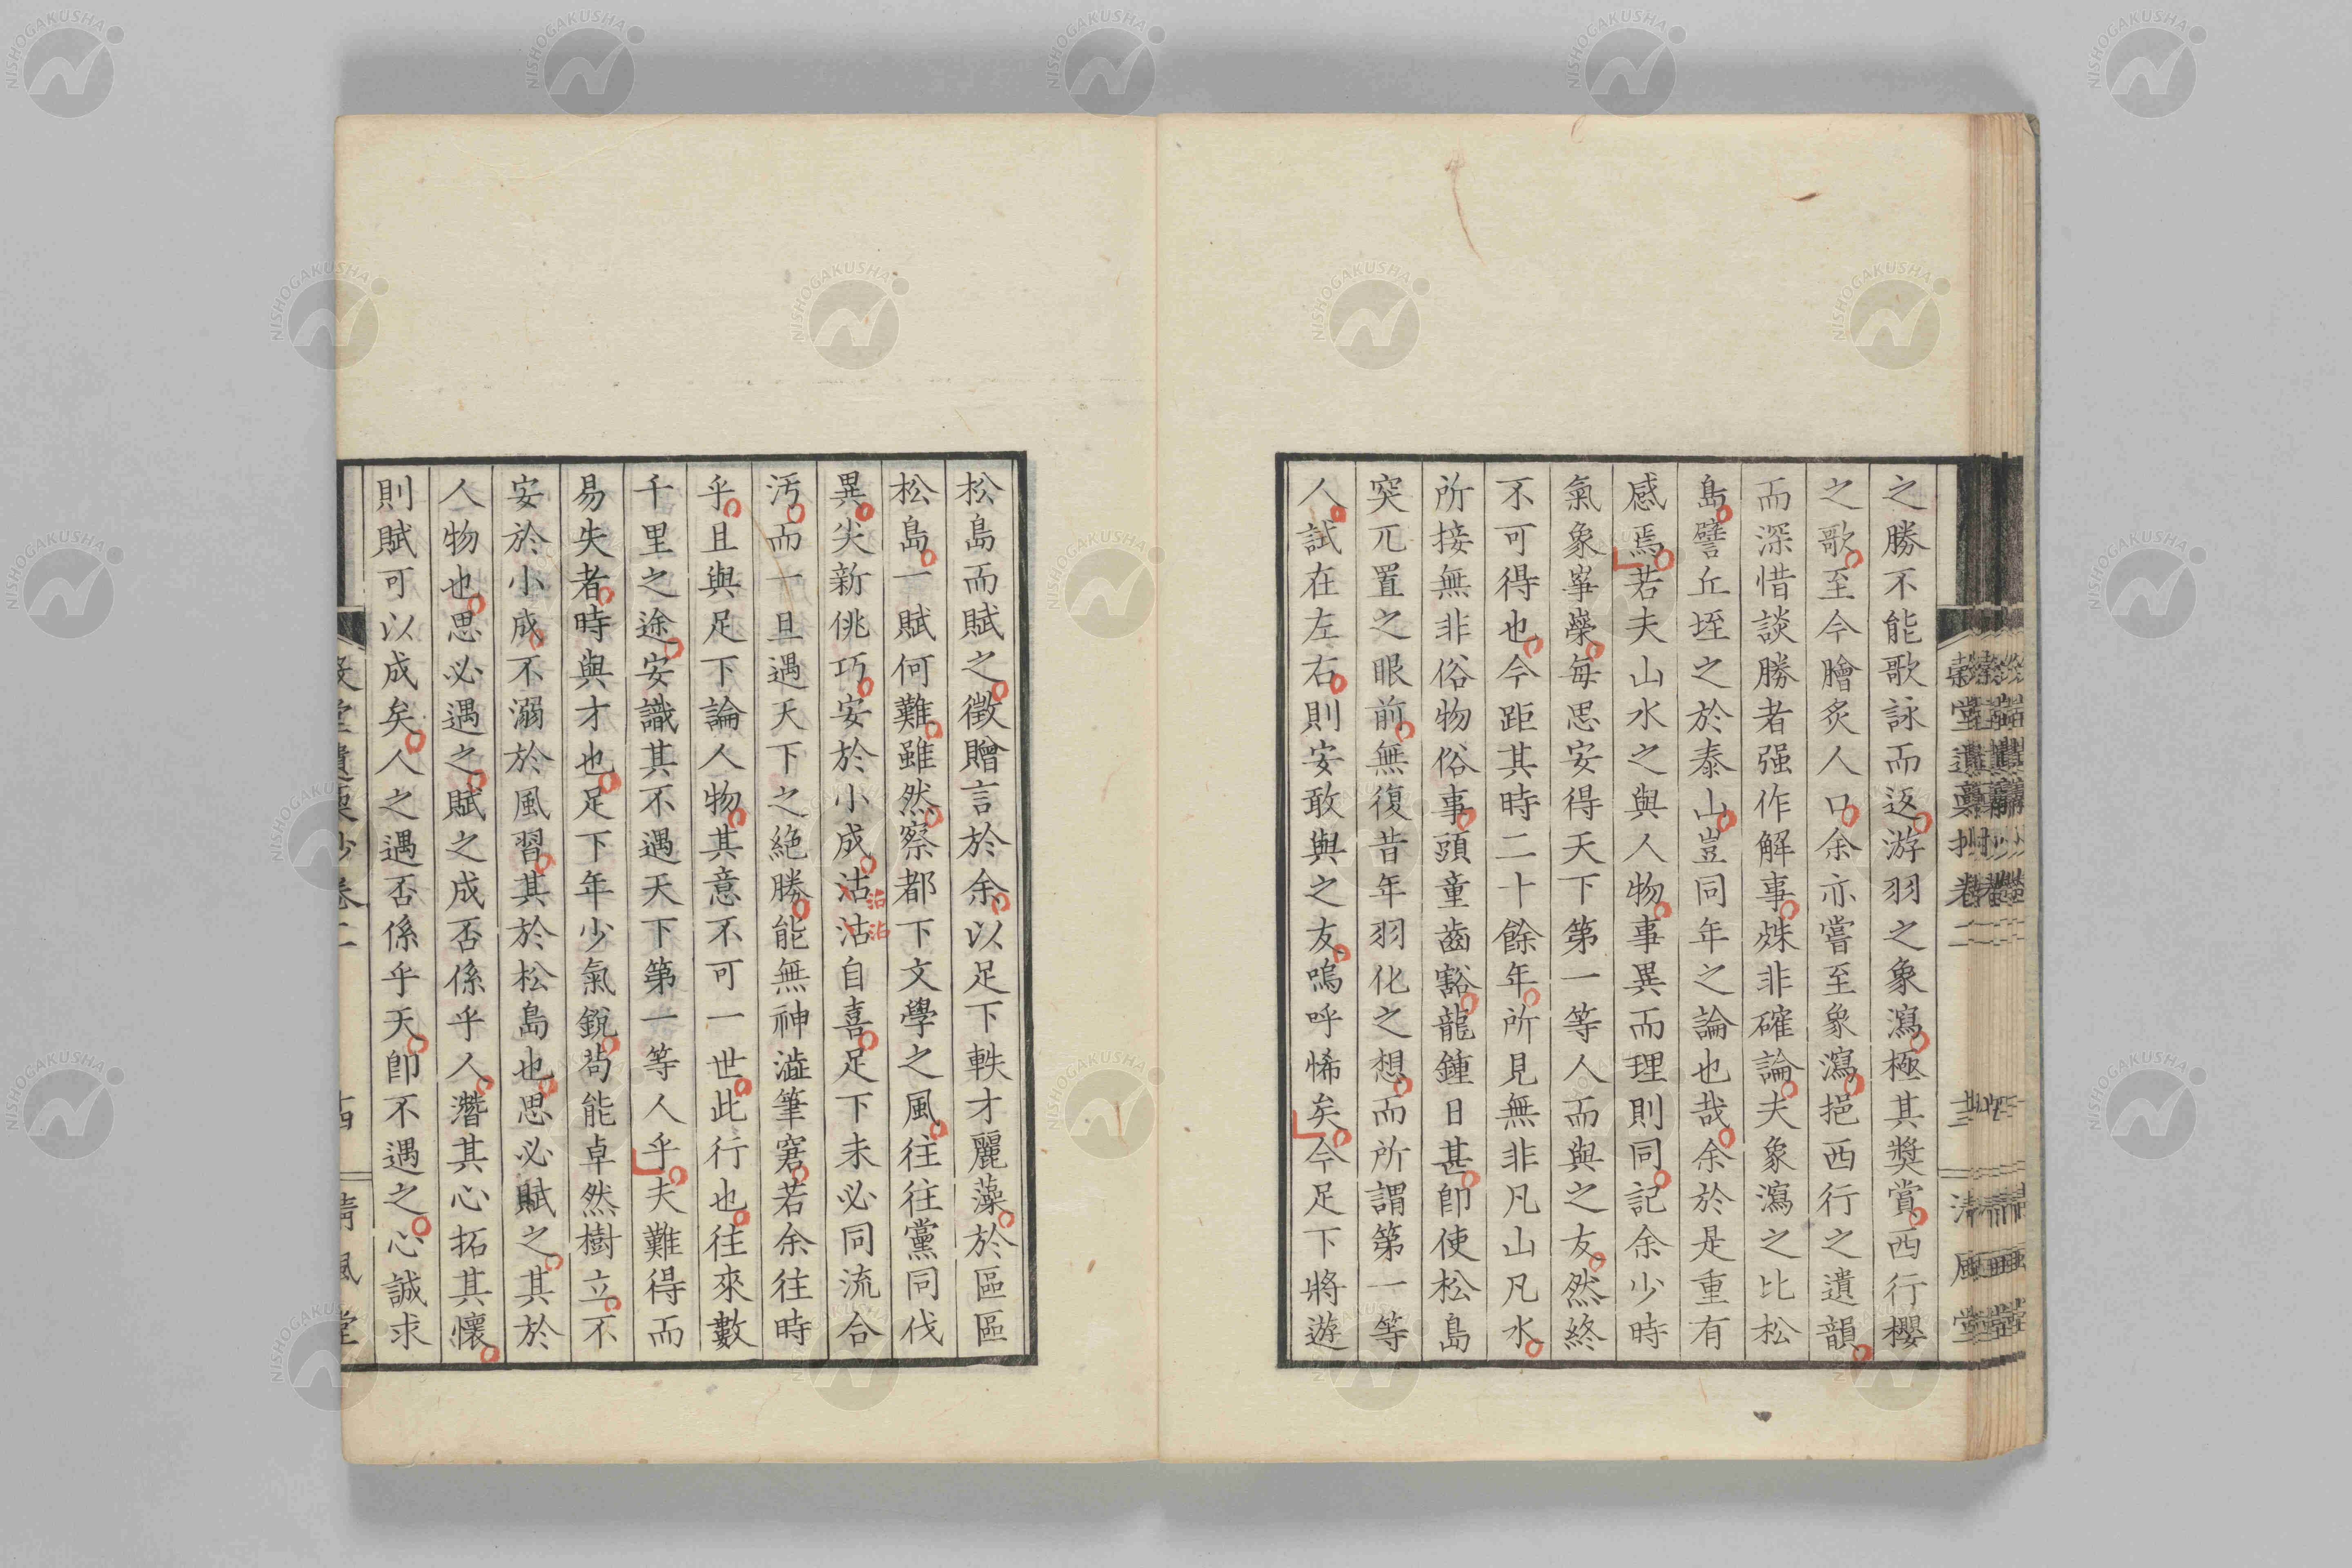 之勝不能歌詠而返游羽之象瀉極其奬賞西行櫻
之歌至今膾炙人口余亦嘗至象瀉挹西行之遺韻
而深惜談勝者强作解事烑非確論夫象瀉之比松
島譬丘垤之於泰山豈同年之論也哉余於是重有
感焉若夫山水之與人物事異而理則同記余少時
氣象崋㠎每思安得天下第一等人而與之友然終
不可得也今距其時二十餘年所見無非凡山凡水
所接無非俗物俗事頭童齒豁龍鍾日甚卽使松島
突兀置之眼前無復昔年羽化之想而所謂第一等
人試在左右則安敢與之友嗚呼悕矣今足下將遊
松島而賦之徵贈言於余以足下軼才麗藻於區區
松島一賦何難雖然察都下文學之風往往黨同伐
異尖新佻巧安於小成沽沽自喜足下未必同流合
沾沾
汚而一旦遇天下之絶勝能無神澁筆窘若余往時
乎且與足下論人物其意不可一世此行也往來數
千里之途安識其不遇天下第一等人乎夫難得而
易失者時與才也足下年少氣銳苟能卓然樹立不
安於小成不溺於風習其於松島也思必賦之其於
人物也思必遇之賦之成否係乎人濳其心拓其懷
則賦可以成矣人之遇否係乎天卽不遇之心誠求